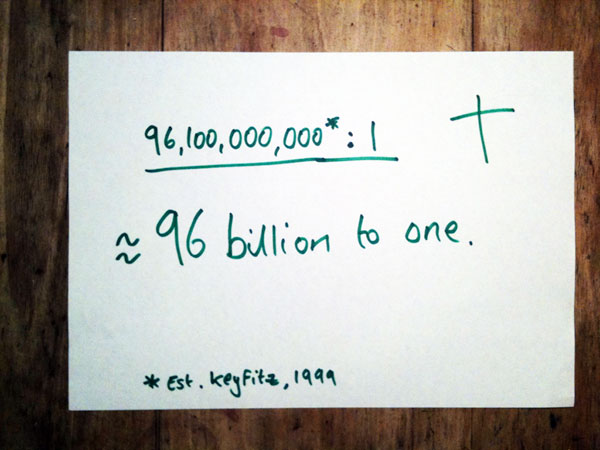 96,100,000,000* : 1
≈ 96 billion to one.
* Est. Keyfitz, 1999